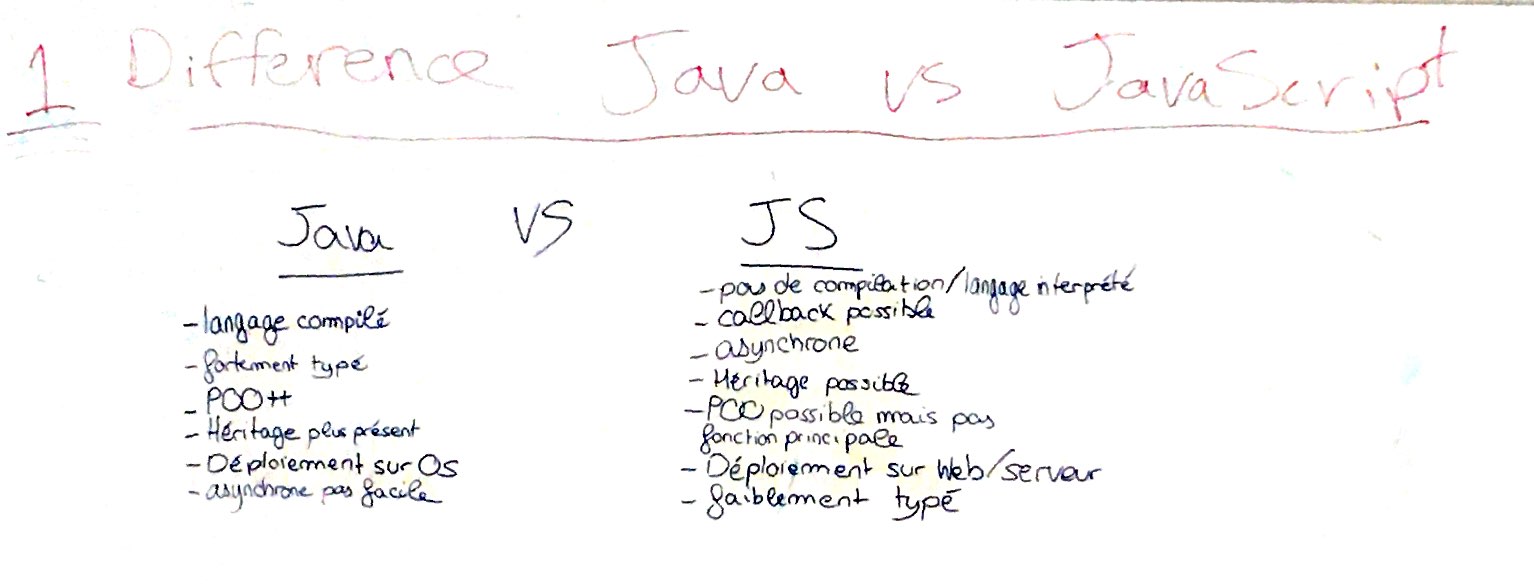 1 Difference Java vs JavaScript
Java vs JS
- langage compilé
- fortement typé
- POO++
- Héritage plus présent
- Déploiement sur OS
- asynchrone pas facile
- pas de compilation/langage interprété
- callback possible
- asynchrone
- Héritage possible
- POO possible mais pas
fonction principale
- Déploiement sur Web/serveur
- faiblement typé